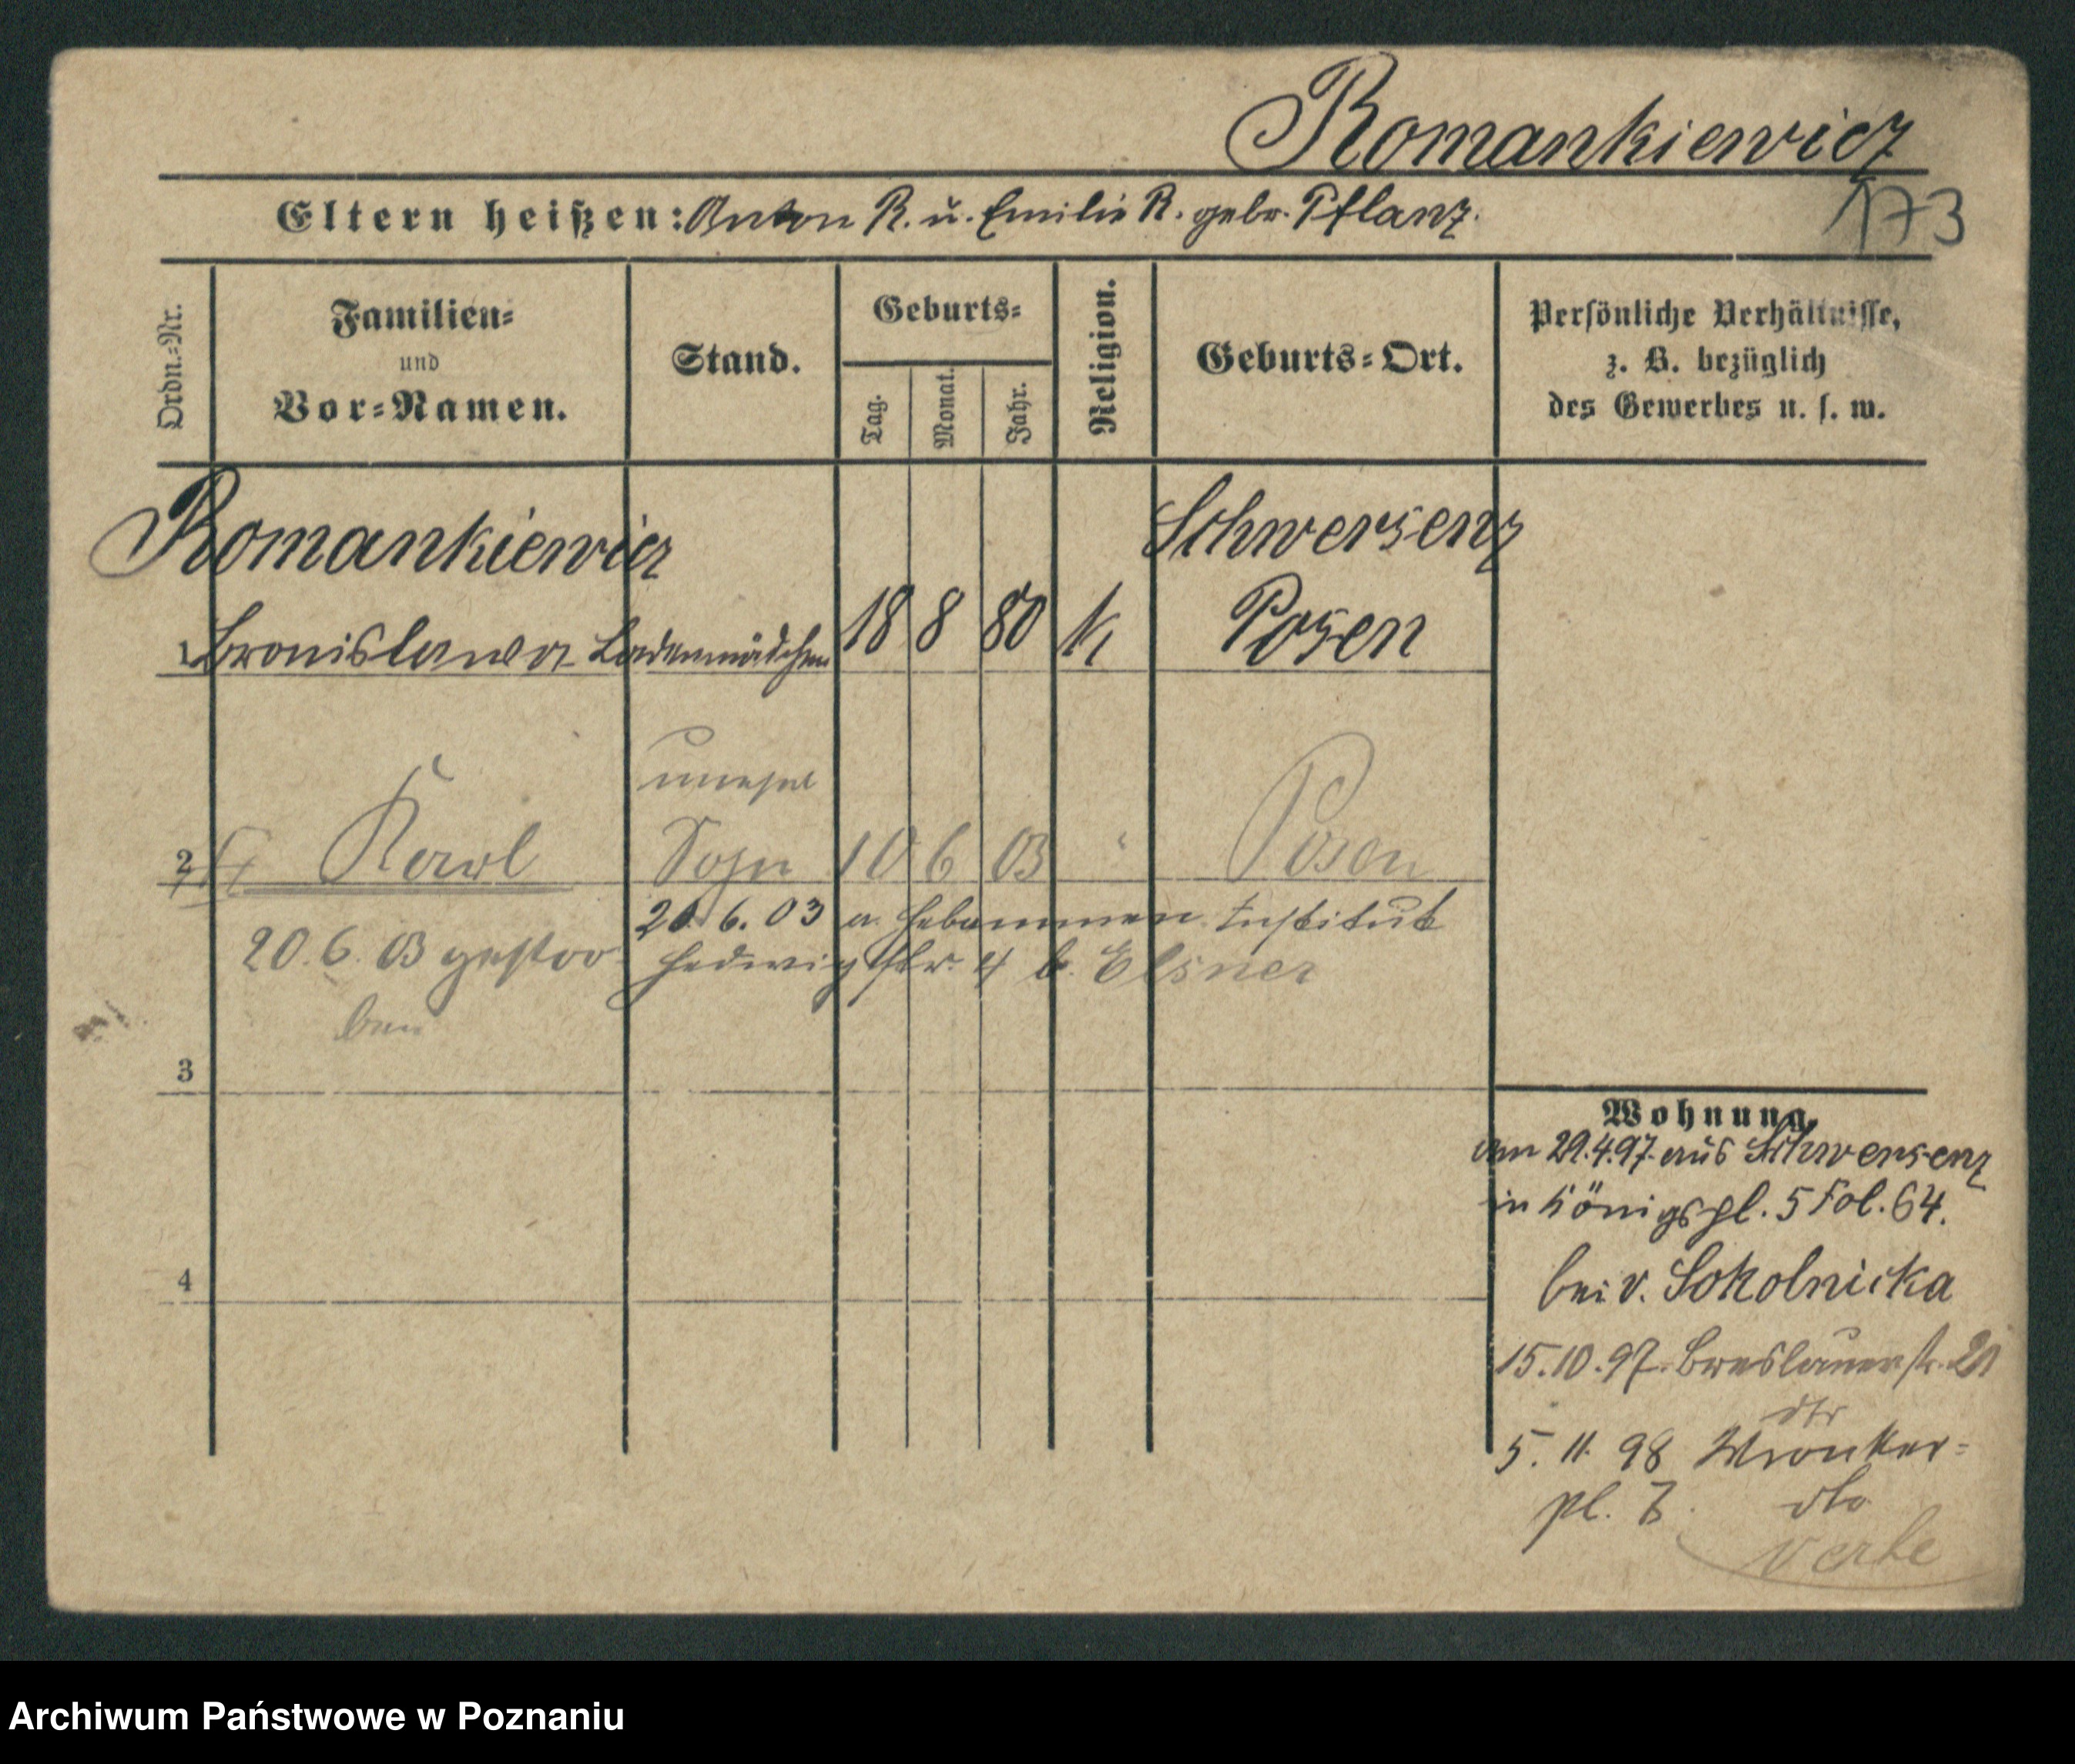 Romankiewicz
173
Eltern heißen: Anton R. u. Emilie R. gebr. Pflanz.
Ordn.=Nr.
Familien=
und
Vor=Namen.
Stand.
Geburts=
Tag.
Monat.
Jahr.
Religion.
Geburts=Ort.
Persönliche Verhältnisse,
z. B. bezüglich
des Gewerbes u. s. w.
Romankiewicz Schwersenz
1 Bronislawa Ladenmädchen 18 8 80 k Posen
unehel
2 Karl Sohn 10 6 03 " Posen
20. 6. 03 a. Hebammen Institut
20. 6. 03 gestor
Hedwigstr. 4 b. Elsner
ben
3
4
Wohnung.
am 29.4.97. aus Schwersenz
in Königspl. 5 Fol. 64.
bei v. Sokolnicka
15.10.97. Breslauerstr. 21
dto
5. 11. 98 Wronker=
pl. 7. dto
Archiwum Państwowe w Poznaniu